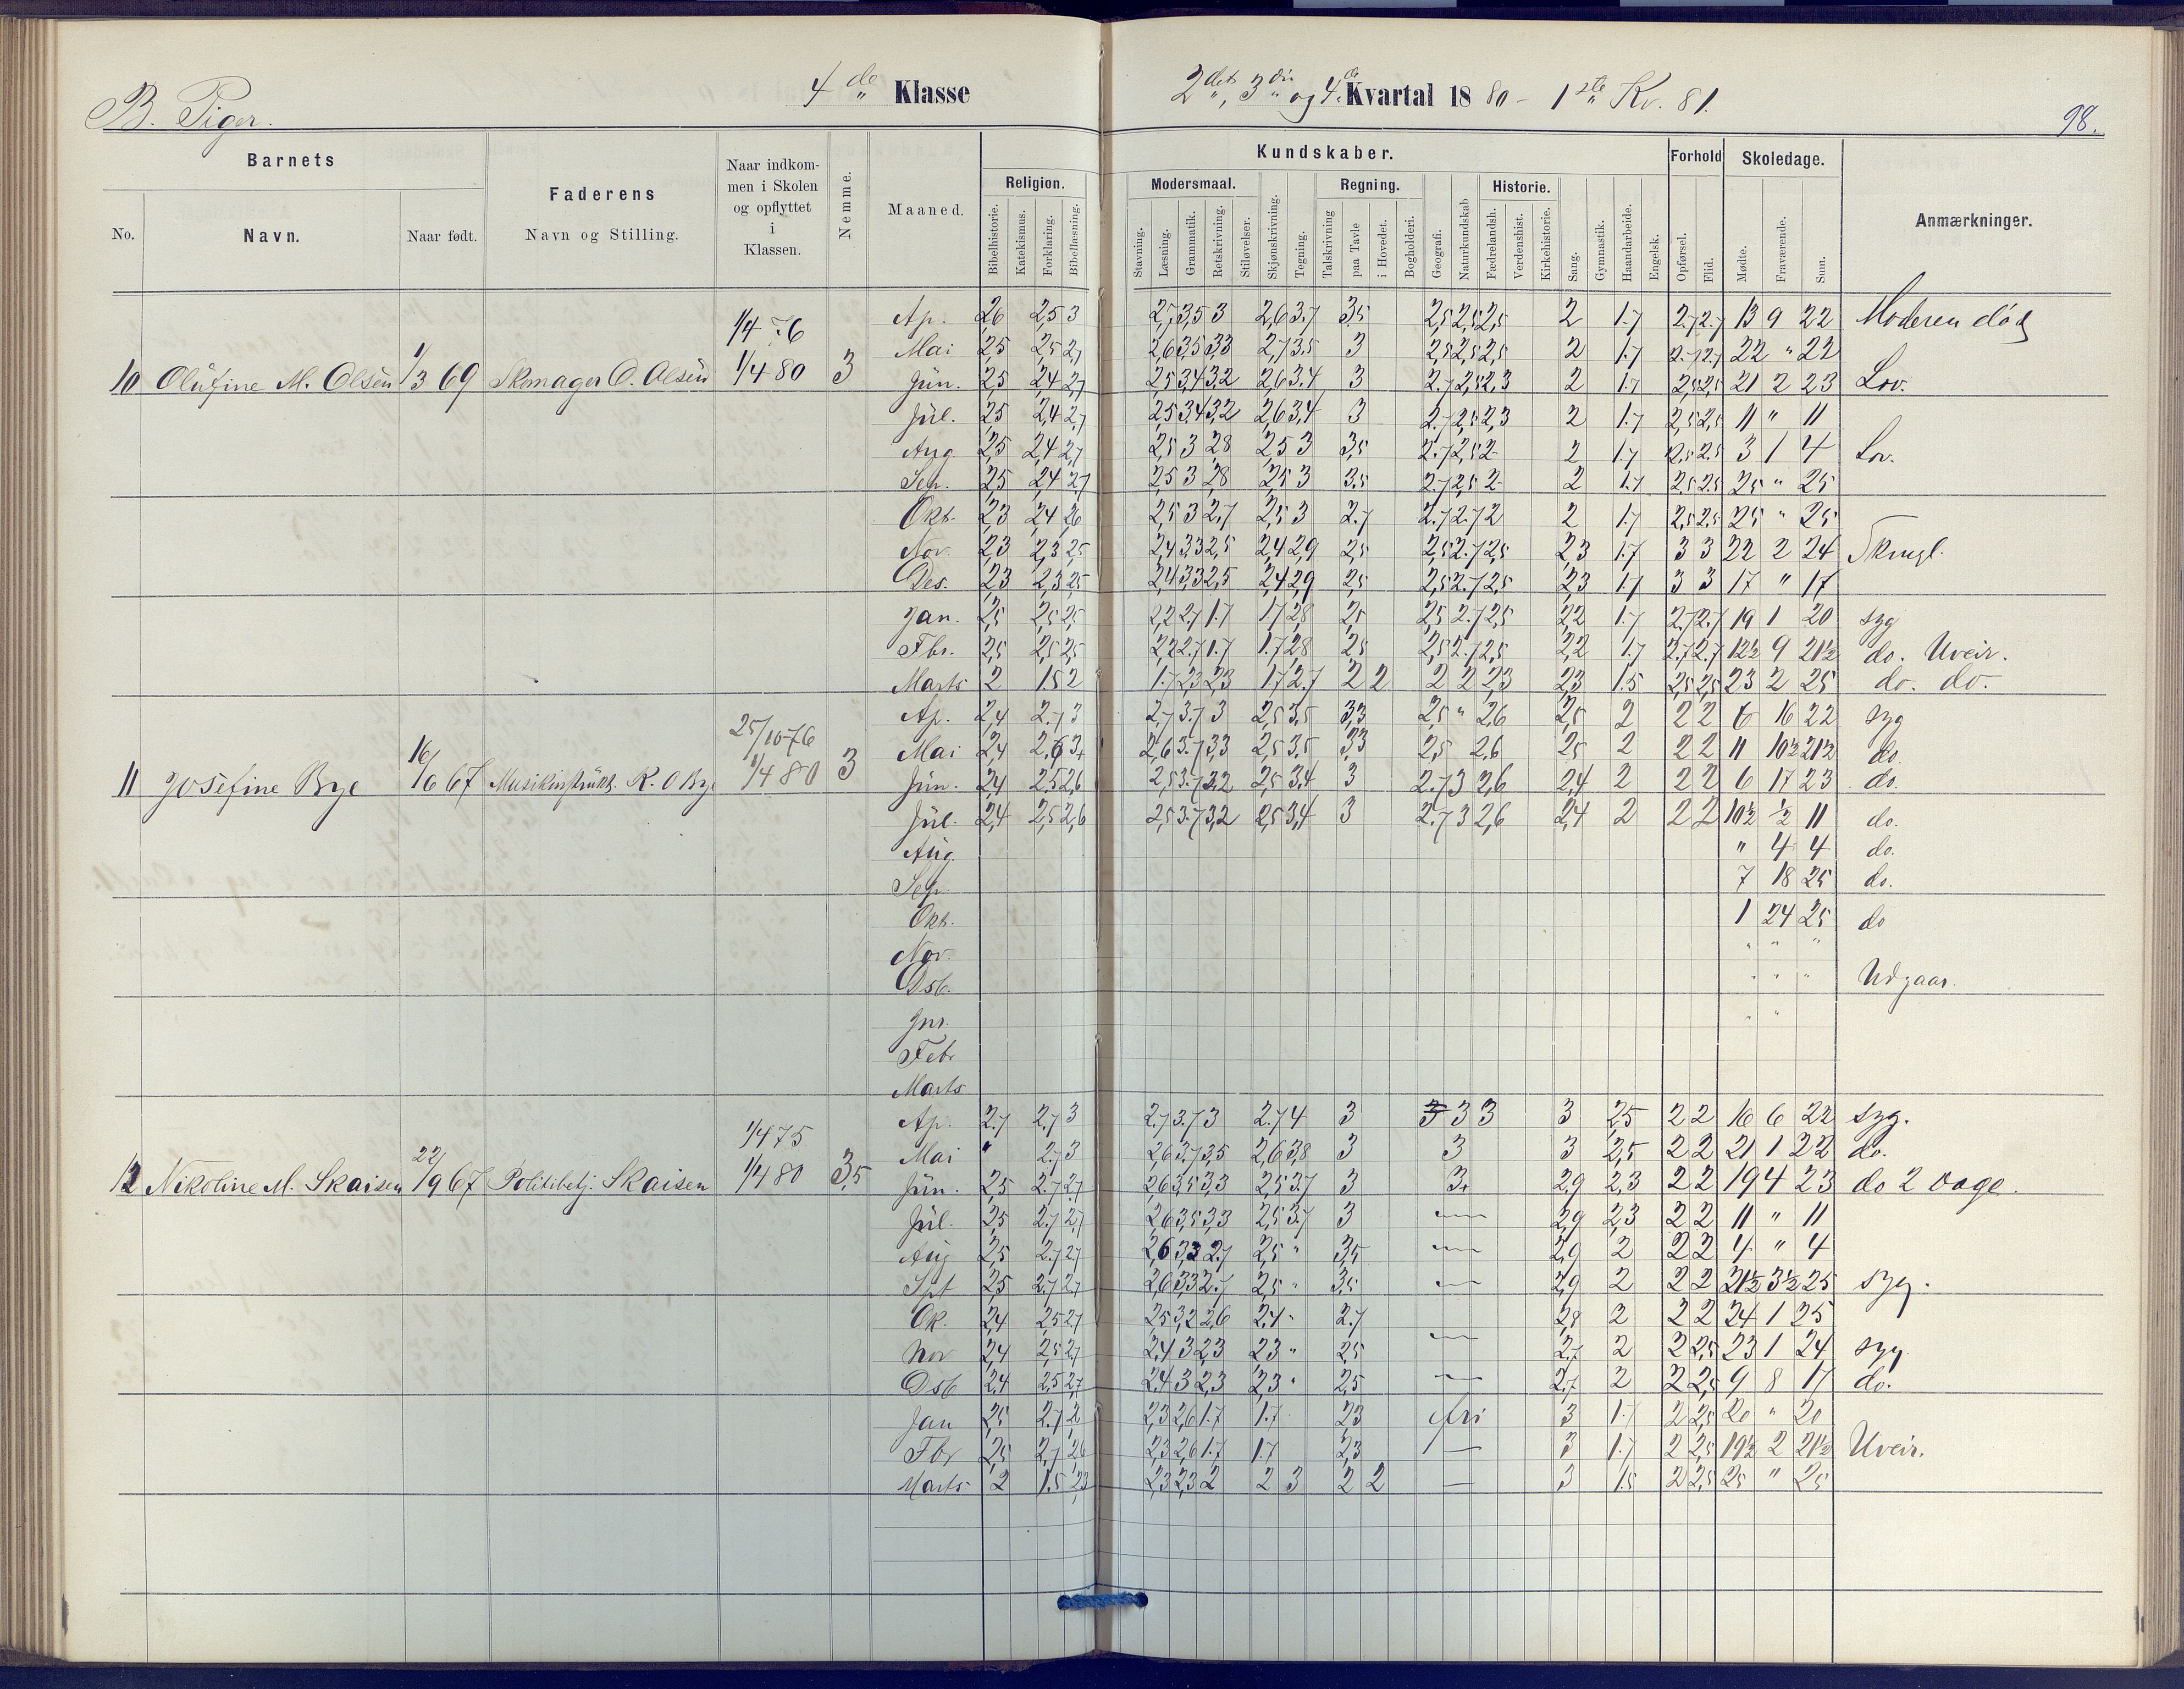 B. Piger.
4de Klasse
2det, 3die og 4de Kvartal 1880 - 1ste Kv. 81.
98.
Barnets
Faderens
Naar indkommen i Skolen og opflyttet i Klassen.
Nemme.
Maaned.
Kundskaber.
Forhold
Skoledage.
Anmærkninger.
No.
Navn.
Naar født.
Navn og Stilling.
Religion.
Modersmaal.
Regning.
Historie.
Bibelhistorie. Katekismus. Forklaring. Bibellæsning. Stavning. Læsning. Grammatik. Retskrivning. Stiløvelser. Skjønskrivning. Tegning. Talskrivning paa Tavle i Hovedet. Bogholderi. Geografi. Naturkundskab Fædrelandsh. Verdenshist. Kirkehistorie. Sang. Gymnastik. Haandarbeide. Engelsk. Opførsel. Flid. Mødte. Fraværende. Sum.
1/4 76
10 Olufine M. Olsen 1/3 69 Skomager O. Olsen 1/4 80 3
Ap. 2,6 2,5 3 2,7 3,5 3 2,6 3,7 3,5 2,5 2,5 2,5 2 1.7 2.7 2.7 13 9 22 Moderen død
Mai 2,5 2,5 2,7 2,6 3,5 3,3 2,7 3,5 3 2,5 2,5 2,5 2 1.7 2.7 2.7 22 " 22
Jün. 2,5 2,4 2,7 2,5 3,4 3,2 2,6 3,4 3 2.7 2,5 2,3 2 1.7 2,5 2,5 21 2 23 Lov.
Jül. 2,5 2,4 2,7 2,5 3,4 3,2 2,6 3,4 3 2.7 2,5 2,3 2 1.7 2,5 2,5 11 " 11
Aug 2,5 2,4 2,7 2,5 3 2,8 2,5 3 3,5 2.7 2,5 2 2 1.7 2,5 2,5 3 1 4 Lov.
Sep. 2,5 2,4 2,7 2,5 3 2,8 2,5 3 3,5 2.7 2,5 2 2 1.7 2,5 2,5 25 " 25
Okt. 2,3 2,4 2,6 2,5 3 2,7 2,5 3 2.7 2.7 2.7 2 2 1.7 2,5 2,5 25 " 25
Nov. 2,3 2,3 2,5 2,4 3,3 2,5 2,4 2,9 2,5 2,5 2.7 2,5 2,3 1.7 3 3 22 2 24
Des. 2,3 2,3 2,5 2,4 3,3 2,5 2,4 2,9 2,5 2,5 2.7 2,5 2,3 1.7 3 3 17 " 17
Jan. 2,5 2,5 2,5 2,2 2,7 1.7 1,7 2,8 2,5 2,5 2.7 2,5 2,2 1.7 2.7 2.7 19 1 20 syg
Fbr. 2,5 2,5 2,5 2,2 2.7 1.7 1.7 2,8 2,5 2,5 2.7 2,5 2,2 1.7 2.7 2.7 12½ 9 21½ do. Uveir.
Marts 2 1.5 2 1.7 2,3 2,3 1,7 2.7 2 2 2 2 2,3 2,3 1.5 2,5 2,5 23 2 25 do. do.
25/10-76
11 Josefine Bye 16/6 67 R. O Bye 1/4 80 3
Ap. 2,4 2.7 3 2,7 3.7 3 2,5 3,5 3,3 2,5 " 2,6 2,5 2 2 2 6 16 22 syg
Mai 2,4 2,6 3 2,6 3.7 3,3 2,5 3,5 3,3 2,5 2,6 2,5 2 2 2 11 10½ 21½ do.
Jün. 2,4 2,5 2,6 2,5 3.7 3,2 2,5 3,4 3 2.7 3 2,6 2,4 2 2 2 6 17 23 do.
Jül. 2,4 2,5 2,6 2,5 3.7 3,2 2,5 3,4 3 2.7 3 2,6 2,4 2 2 2 10½ ½ 11 do.
Aug. " 4 4 do.
Sep. 7 18 25 do.
Okt. 1 24 25 do
Nov. " " "
Dsb. " " " Udgaar.
Jnr. " "
Febr
Marts
1/4 75
12 Nikoline M. Skaisen 22/9 67 Politibetj. Skaisen 1/4 80 3,5
Ap. 2.7 2.7 3 2.7 3.7 3 2.7 4 3 3 3 3 3 2,5 2 2 16 6 22 syg.
Mai " 2.7 3 2,6 3.7 3,5 2,6 3,8 3 3 3 2,5 2 2 21 1 22 do.
Jün. 2,5 2.7 2,7 2,6 3,5 3,3 2,5 3.7 3 3 2,9 2,3 2 2 19 4 23 do 2 Dage.
Jül. 2,5 2.7 2,7 2,6 3,5 3,3 2,5 3.7 3 — 2,9 2,3 2 2 11 " 11
Aug 2,5 2.7 2,7 2,6 3,3 2.7 2,5 " 3,5 — 2,9 2 2 2 4 " 4
Spt 2,5 2.7 2,7 2,6 3,3 2.7 2,5 " 3,5 — 2,9 2 2 2 21½ 3½ 25 syg.
Ok. 2,4 2,5 2,7 2,5 3,2 2,6 2,4 " 2.7 — 2,8 2 2 2 24 1 25
Nov 2,4 2,5 2,7 2,4 3 2,3 2,3 " 2,5 — 2.7 2 2 2,5 23 1 24 syg
Dsb 2,4 2,5 2,7 2,4 3 2,3 2,3 " 2,5 — 2.7 2 2 2,5 9 8 17 do.
Jan 2,5 2.7 2 2,3 2,6 1.7 1.7 2,3 fri 3 1.7 2 2,5 20 " 20
Fbr 2,5 2,7 2,6 2,3 2,6 1.7 1.7 2,3 — 3 1.7 2 2,5 19½ 2 21½ Uveir.
Marts 2 1.5 2,3 2,3 2,3 2 2 3 2 2 — 3 1.5 2 2,5 25 " 25